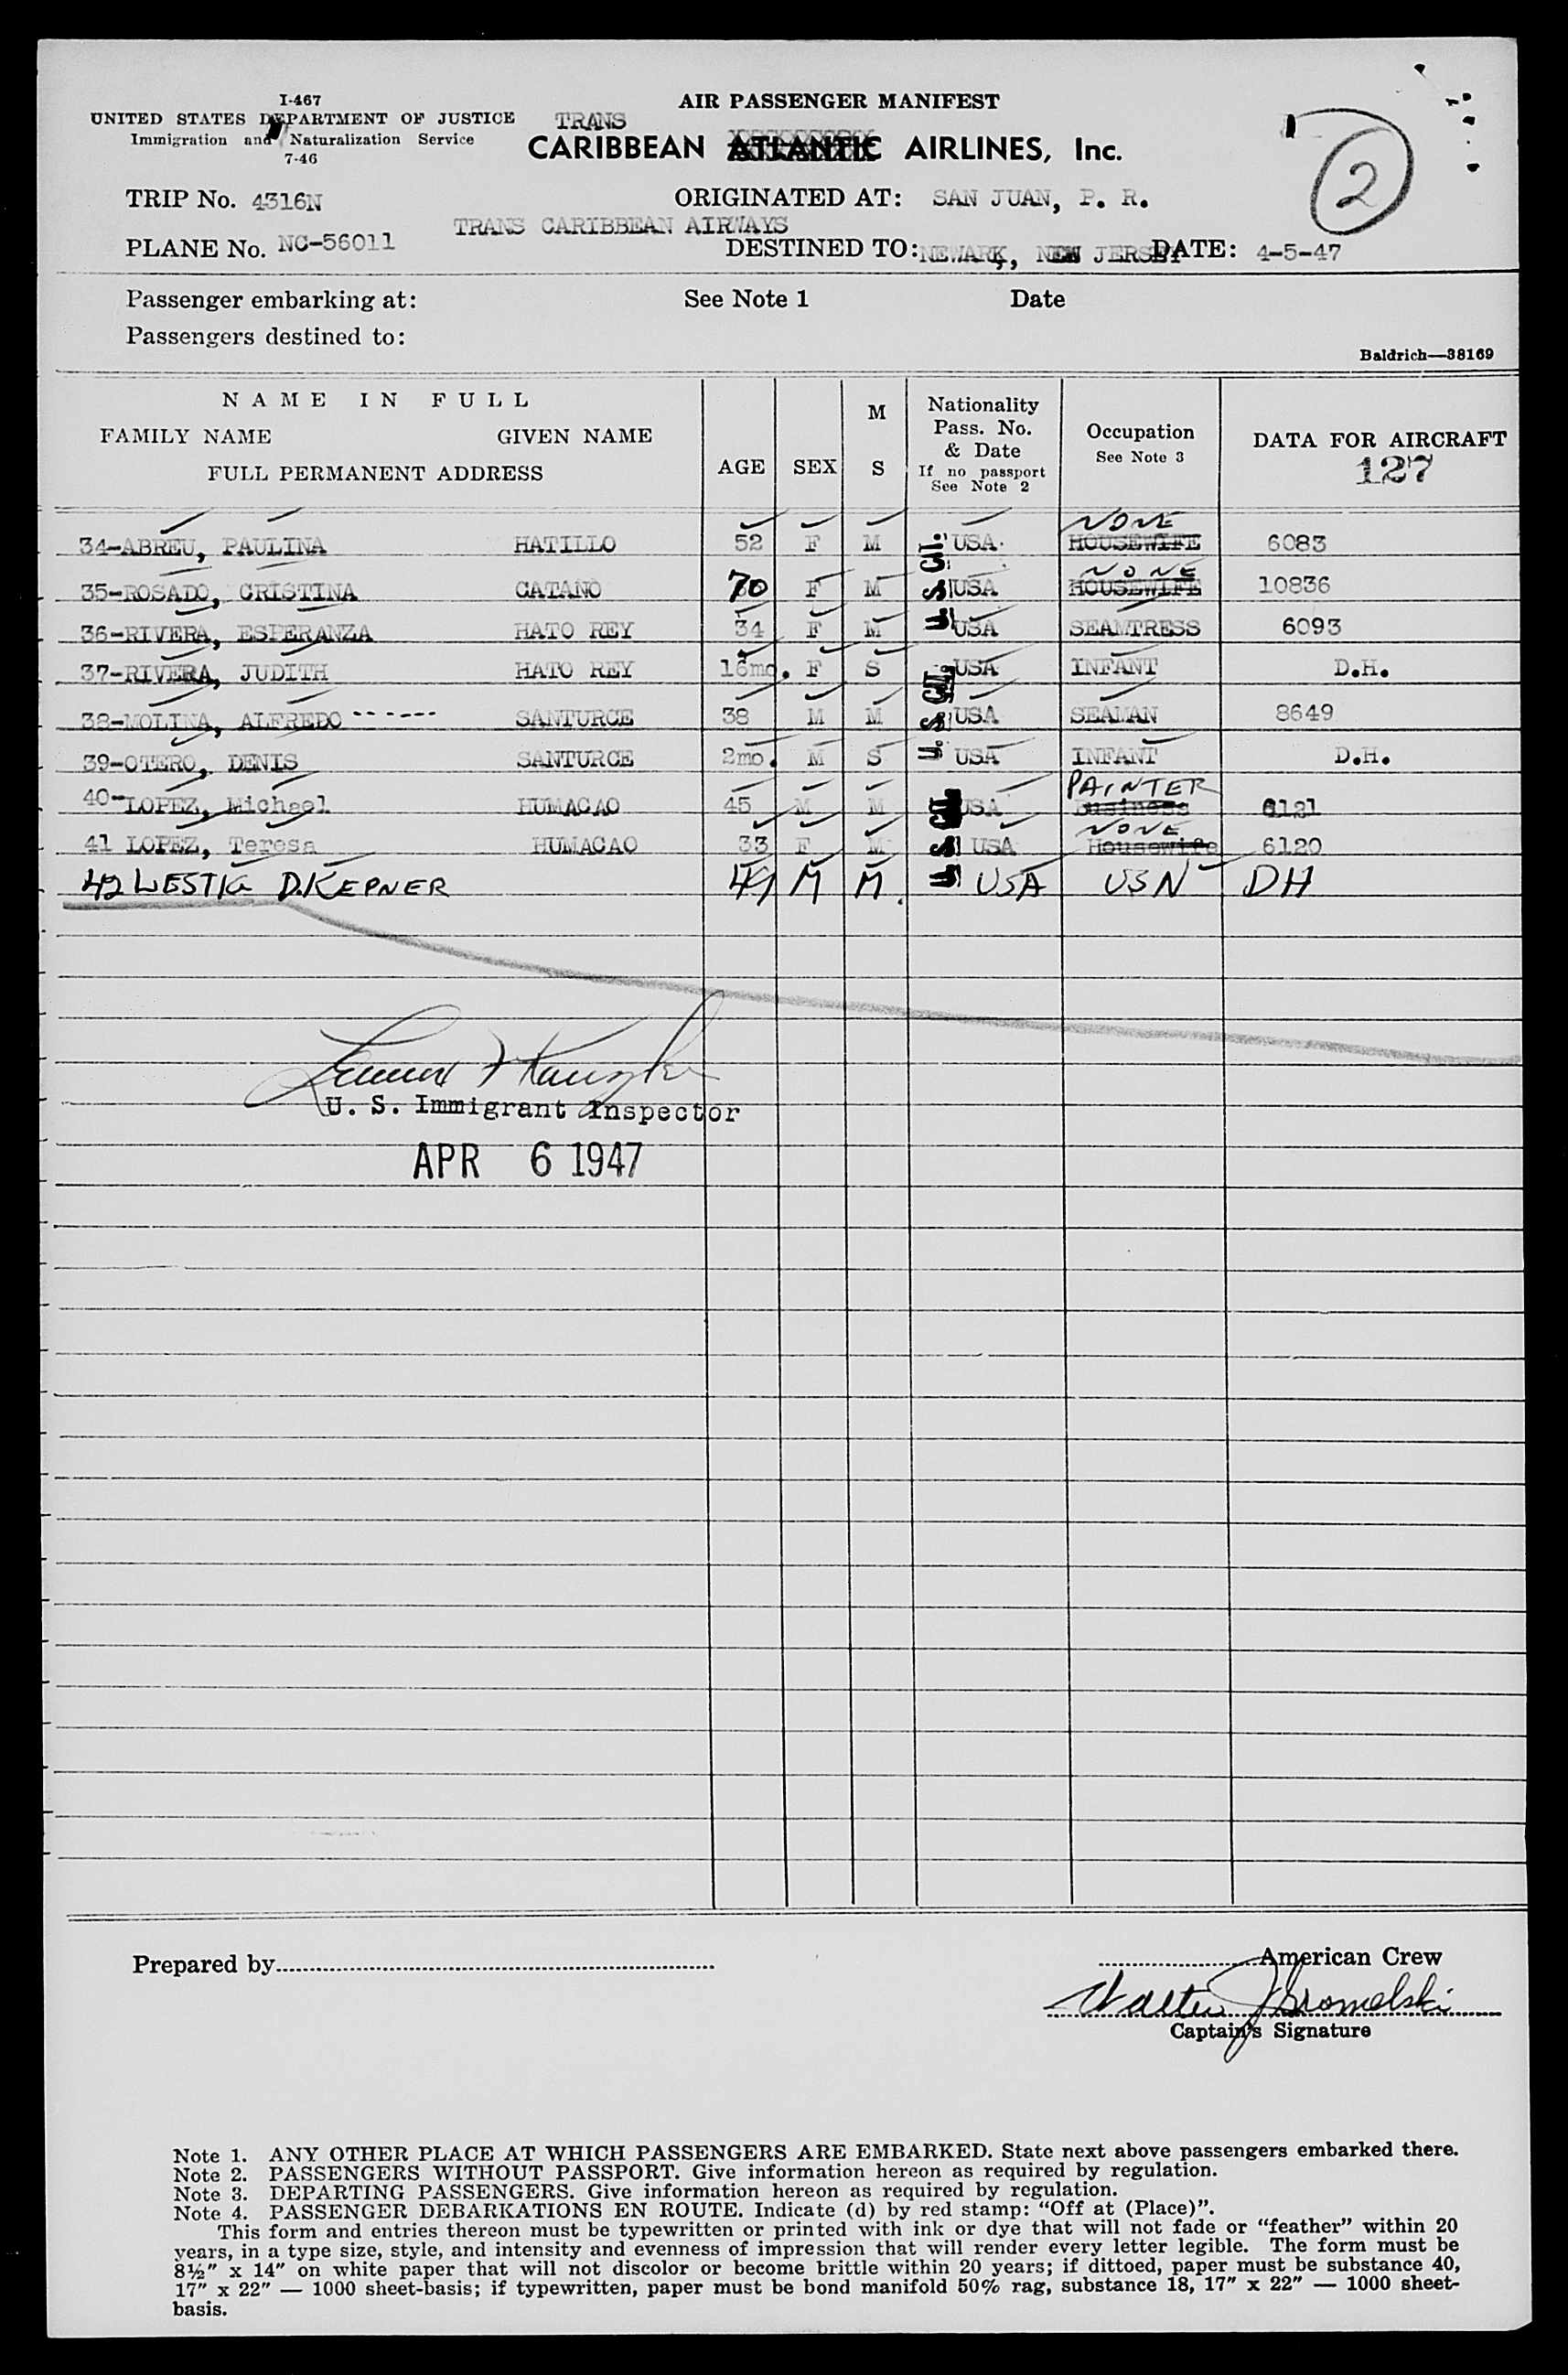 I-467
UNITED STATES DEPARTMENT OF JUSTICE
Immigration and Naturalization Service
7-46
AIR PASSENGER MANIFEST
TRANS
CARIBBEAN ATLANTIC AIRLINES, Inc.
2
TRIP No. 4316N
ORIGINATED AT: SAN JUAN, P. R.
TRANS CARIBBEAN AIRWAYS
PLANE No. NC-56011
DESTINED TO: NEWARK, NEW JERSEY DATE: 4-5-47
Passenger embarking at: See Note 1 Date
Passengers destined to:
Baldrich—38169
NAME IN FULL
FAMILY NAME GIVEN NAME
FULL PERMANENT ADDRESS
AGE
SEX
M
S
Nationality
Pass. No.
& Date
If no passport
See Note 2
Occupation
See Note 3
DATA FOR AIRCRAFT
127
NONE
34-ABREU, PAULINA HATILLO 52 F M U. S. CIT. USA. HOUSEWIFE 6083
NONE
35-ROSADO, CRISTINA CATANO 70 F M USA HOUSEWIFE 10836
36-RIVERA, ESPERANZA HATO REY 34 F M USA SEAMTRESS 6093
37-RIVERA, JUDITH HATO REY 16mo. F S U. S. CIT. USA INFANT D.H.
38-MOLINA, ALFREDO ------ SANTURCE 38 M M USA SEAMAN 8649
39-OTERO, DENIS SANTURCE 2mo. M S USA INFANT D.H.
PAINTER
40-LOPEZ, Michael HUMACAO 45 M M U. S. CIT. USA Business 6121
NONE
41 LOPEZ, Teresa HUMACAO 33 F M USA Housewife 6120
D. KEPNER 49 M M. USA USN DH
U. S. Immigrant Inspector
APR 6 1947
Prepared by
American Crew
Walter
Captain's Signature
Note 1. ANY OTHER PLACE AT WHICH PASSENGERS ARE EMBARKED. State next above passengers embarked there.
Note 2. PASSENGERS WITHOUT PASSPORT. Give information hereon as required by regulation.
Note 3. DEPARTING PASSENGERS. Give information hereon as required by regulation.
Note 4. PASSENGER DEBARKATIONS EN ROUTE. Indicate (d) by red stamp: “Off at (Place)”.
This form and entries thereon must be typewritten or printed with ink or dye that will not fade or “feather” within 20
years, in a type size, style, and intensity and evenness of impression that will render every letter legible. The form must be
8½″ x 14″ on white paper that will not discolor or become brittle within 20 years; if dittoed, paper must be substance 40,
17″ x 22″ — 1000 sheet-basis; if typewritten, paper must be bond manifold 50% rag, substance 18, 17″ x 22″ — 1000 sheet-
basis.